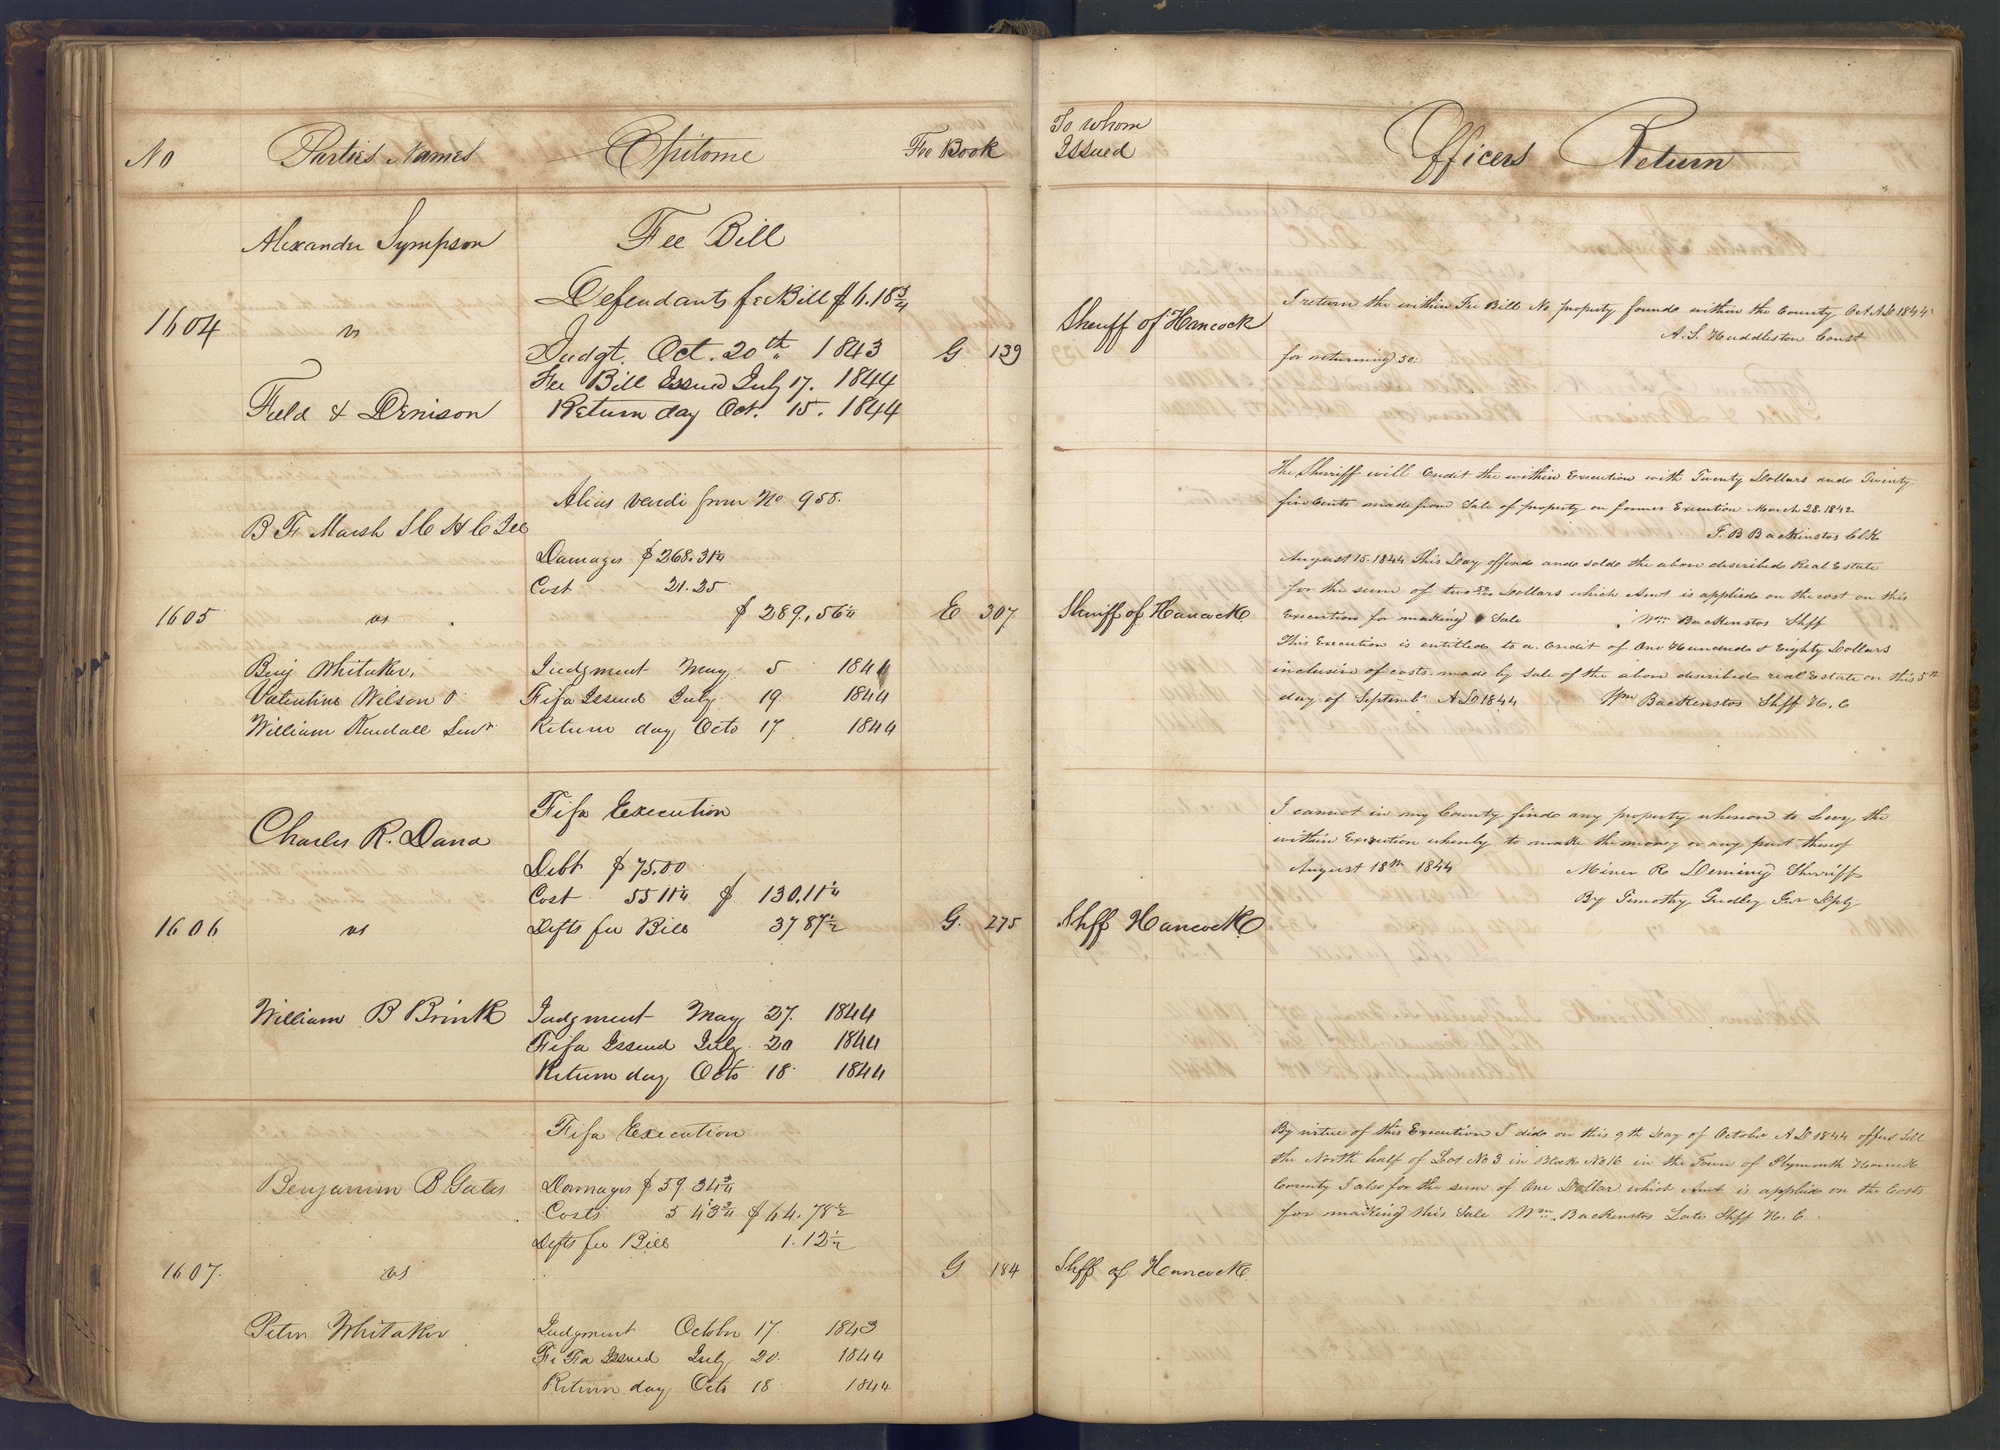 No Parties Names Epitome Fee Book
Alexander Sympson
1604 vs
Field & Denison
Fee Bill
Defendants fee Bill $6.18¾
Judgt. Oct. 20th 1843
Fee Bill Issued July 17. 1844
Return day Oct. 15. 1844
G 139
B F Marsh S C H C Ill
1605 vs
Benj Whitaker,
Valentine Wilson &
William Kendall Senr
Alias vendi from No 958.
Damages $268.31¼
Cost 21.25
$289,56¼
Judgment May 5 1841
Fifa Issued July 19 1844
Return day Octo 17 1844
E 307
Charles R. Dana
1606 vs
William B Brink
Fifa Execution
Debt $75.00
Cost 55 11¼ $ 130.11¼
Defts fee Bill 37 87½
Judgment May 27. 1844
Fifa Issued July 20 1844
Return day Octo 18 1844
G. 275
Benjamin B Gates
1607. vs
Peter Whitaker
Fifa Execution
Damages $59 34¾
Costs 5 43¾ $64.78½
Defts fee Bill 1.12½
Judgment October 17 1843
Fi Fa Issued July 20. 1844
Return day Octo 18 1844
G 184
To whom
Issued
Officers Return
Sheriff of Hancock
I return the within Fee Bill No property found within the County Oct AD 1844
A. S. Huddleston Const
for returning 50
Sheriff of Hancock
The Sherriff will Credit the within Execution with Twenty Dollars and Twenty
five Cents made from Sale of property on former Execution March 28. 1842
J. B Backenstos Clk
August 15. 1844 This Day offered and sold the above described Real Estate
for the sum of two Dollars which Amt is applied on the cost on this
Execution for making Sale Wm Backenstos Shff
This Execution is entitled to a Credit of One Hundred & Eighty Dollars
inclusive of costs made by sale of the above described real Estate on this 5th
day of Septemb. AD 1844 Wm Backenstos Shff H. C
Shff Hancock
I cannot in my County find any property whereon to Levy the
within Execution whereby to make the money or any part thereof
August 18th 1844 Miner R Deming Sherriff
By Timothy Dpty
Shff of Hancock
By virtue of this Execution I did on this 9th Day of October AD 1844 offer Sell
the North half of Lot No 3 in Block No 16 in the Town of Plymouth Hancock
County I also for the sum of One Dollar which Amt is applied on the Costs
for making this Sale Wm. Backenstos Late Shff H. C.